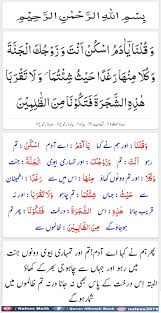 بِسْمِ اللّٰهِ الرَّحْمٰنِ الرَّحِيْمِ
وَ قُلْنَا يٰۤاٰدَمُ اسْكُنْ اَنْتَ وَ زَوْجُكَ الْجَنَّةَ
وَ كُلَا مِنْهَا رَغَدًا حَيْثُ شِئْتُمَا وَ لَا تَقْرَبَا
هٰذِهِ الشَّجَرَةَ فَتَكُوْنَا مِنَ الظّٰلِمِيْنَ
وَقُلْنَا : اور ہم نے کہا يٰۤاٰدَمُ : اے آدم اسْكُنْ : تم رہو
اَنْتَ : تم وَزَوْجُكَ : اور تمہاری بیوی الْجَنَّةَ : جنت
وَكُلَا : اور تم دونوں کھاؤ مِنْهَا : اس میں سے رَغَدًا :
حَيْثُ : جہاں شِئْتُمَا : تم چاہو وَلَا تَقْرَبَا : اور نہ
قریب جانا هٰذِهِ : اس الشَّجَرَةَ : درخت فَتَكُوْنَا : پھر تم
ہو جاؤ گے مِنَ الظّٰلِمِيْنَ : ظالموں سے
پھر ہم نے کہا اے آدم! تم اور تمہاری بیوی دونوں جنت
میں رہو اور جہاں سے چاہو کھاؤ
البتہ اس درخت کے پاس بھی نہ جانا ورنہ تم ظالموں میں
شمار ہو گے
Nafees Malik
Quran Hikmah Book